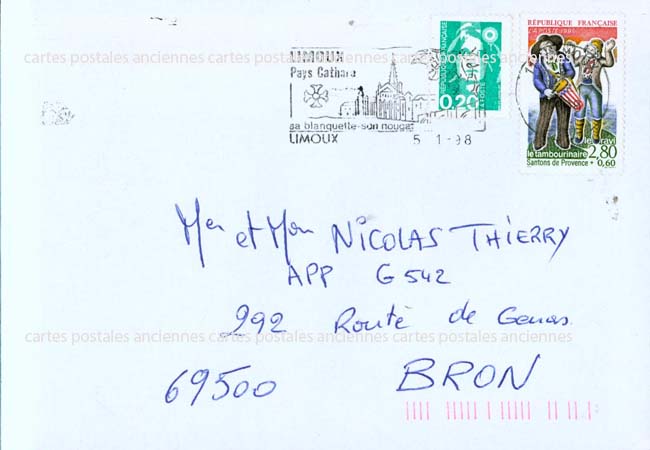 cartes postales anciennes
cartes postales anciennes
LIMOUX
Pays Cathare
sa blanquette-son nougat
LIMOUX
5 1-98
RÉPUBLIQUE FRANÇAISE
0,20
LA POSTE
RÉPUBLIQUE FRANÇAISE
LA POSTE 1995
le ravi
le tambourinaire 2,80
Santons de Provence + 0,60
et NICOLAS THIERRY
APP G 542
292 Route de Genas
cartes postales anciennes
cartes postales anciennes
69500 BRON